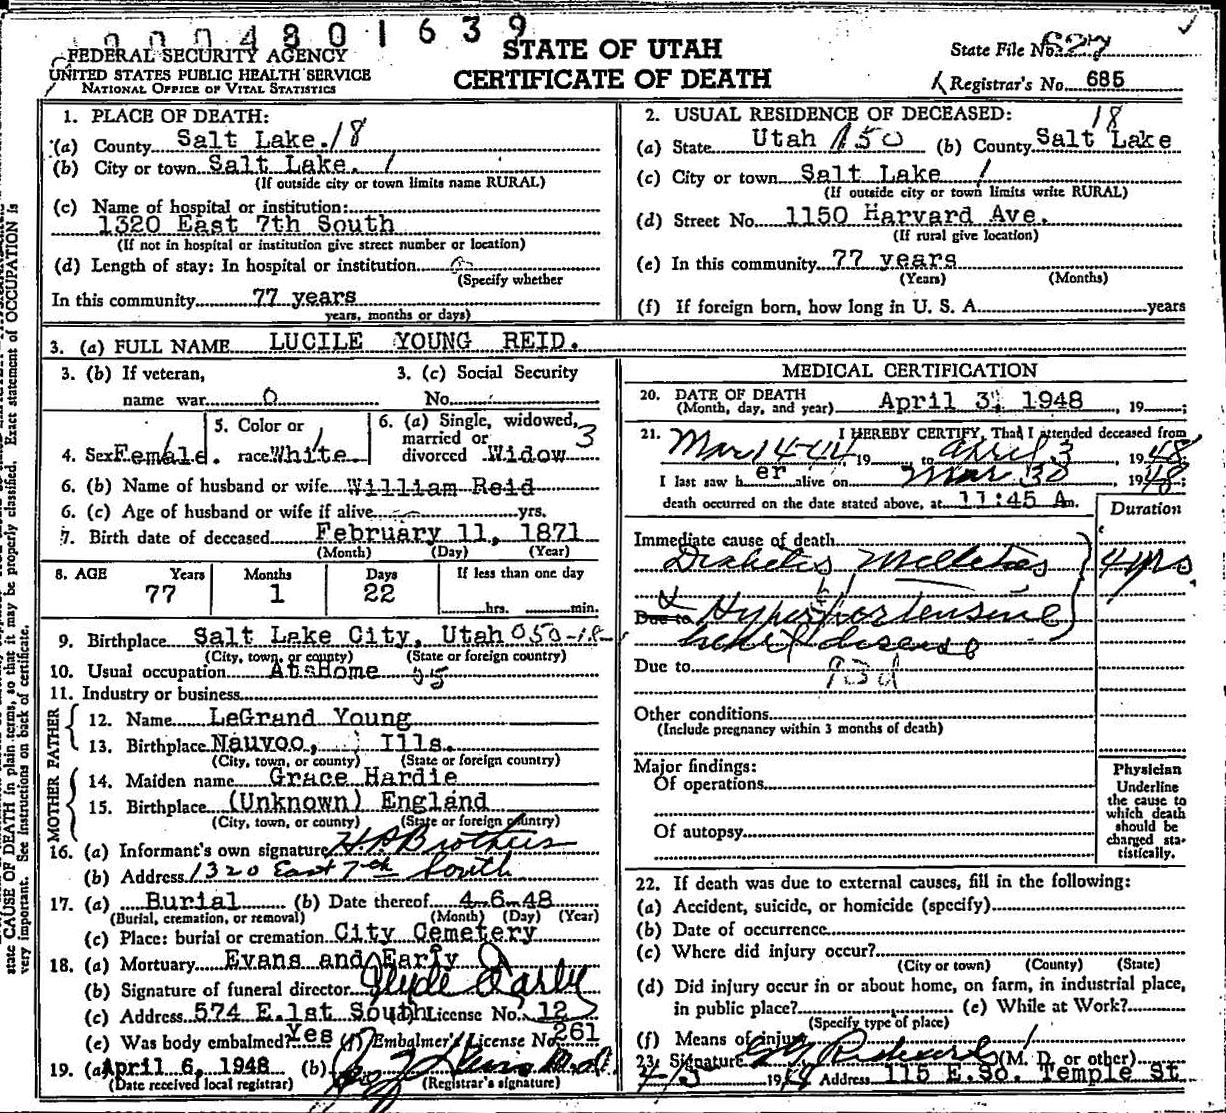 0004801639
FEDERAL SECURITY AGENCY
UNITED STATES PUBLIC HEALTH SERVICE
NATIONAL OFFICE OF VITAL STATISTICS
STATE OF UTAH
CERTIFICATE OF DEATH
State File No.
Registrar's No. 685
1. PLACE OF DEATH:
(a) County Salt Lake. 18
(b) City or town Salt Lake. 1
(If outside city or town limits name RURAL)
(c) Name of hospital or institution:
1320 East 7th South
(If not in hospital or institution give street number or location)
(d) Length of stay: In hospital or institution
(Specify whether
In this community 77 years
years, months or days)
2. USUAL RESIDENCE OF DECEASED: 18
(a) State Utah 150 (b) County Salt Lake
(c) City or town Salt Lake 1
(If outside city or town limits write RURAL)
(d) Street No. 1150 Harvard Ave.
(If rural give location)
(e) In this community 77 years
(Years) (Months)
(f) If foreign born, how long in U. S. A. years
3. (a) FULL NAME LUCILE YOUNG REID.
3. (b) If veteran, name war 0
3. (c) Social Security No.
4. Sex Female.
5. Color or race White
6. (a) Single, widowed, married or divorced Widow 3
6. (b) Name of husband or wife William Reid
6. (c) Age of husband or wife if alive yrs.
7. Birth date of deceased February 11, 1871
(Month) (Day) (Year)
8. AGE Years Months Days If less than one day
77 1 22 hrs. min.
9. Birthplace Salt Lake City, Utah 050-18-
(City, town, or county) (State or foreign country)
10. Usual occupation At Home
11. Industry or business
FATHER
12. Name LeGrand Young
13. Birthplace Nauvoo, Ills.
(City, town, or county) (State or foreign country)
MOTHER
14. Maiden name Grace Hardie
15. Birthplace (Unknown) England
(City, town, or county) (State or foreign country)
16. (a) Informant's own signature H A Brothers
(b) Address 1320 East 7th South
17. (a) Burial (b) Date thereof 4-6-48
(Burial, cremation, or removal) (Month) (Day) (Year)
(c) Place: burial or cremation City Cemetery
18. (a) Mortuary Evans and Early
(b) Signature of funeral director Clyde Early
(c) Address 574 E.1st South License No. 12
(e) Was body embalmed? Yes (f) Embalmer's License No. 261
19. (a) April 6, 1948 (b)
(Date received local registrar) (Registrar's signature)
MEDICAL CERTIFICATION
20. DATE OF DEATH
(Month, day, and year) April 3, 1948 , 19 ;
21. I HEREBY CERTIFY, That I attended deceased from
Mar 14-44, 19 to April 3, 1948,
I last saw her alive on Mar 30, 1948;
death occurred on the date stated above, at 11:45 A m.
Duration
Immediate cause of death
Diabetis Melletis 4 yrs.
Due to & Hypertensive
heart disease
Due to
93d
Other conditions
(Include pregnancy within 3 months of death)
Major findings:
Of operations
Of autopsy
Physician
Underline
the cause to
which death
should be
charged sta-
tistically.
22. If death was due to external causes, fill in the following:
(a) Accident, suicide, or homicide (specify)
(b) Date of occurrence
(c) Where did injury occur?
(City or town) (County) (State)
(d) Did injury occur in or about home, on farm, in industrial place,
in public place? (e) While at Work?
(Specify type of place)
(f) Means of injury
23. Signature (M. D. or other)
Address 115 E.So. Temple St
state CAUSE OF DEATH in plain terms, so that it may be properly classified. Exact statement of OCCUPATION is
very important. See instructions on back of certificate.